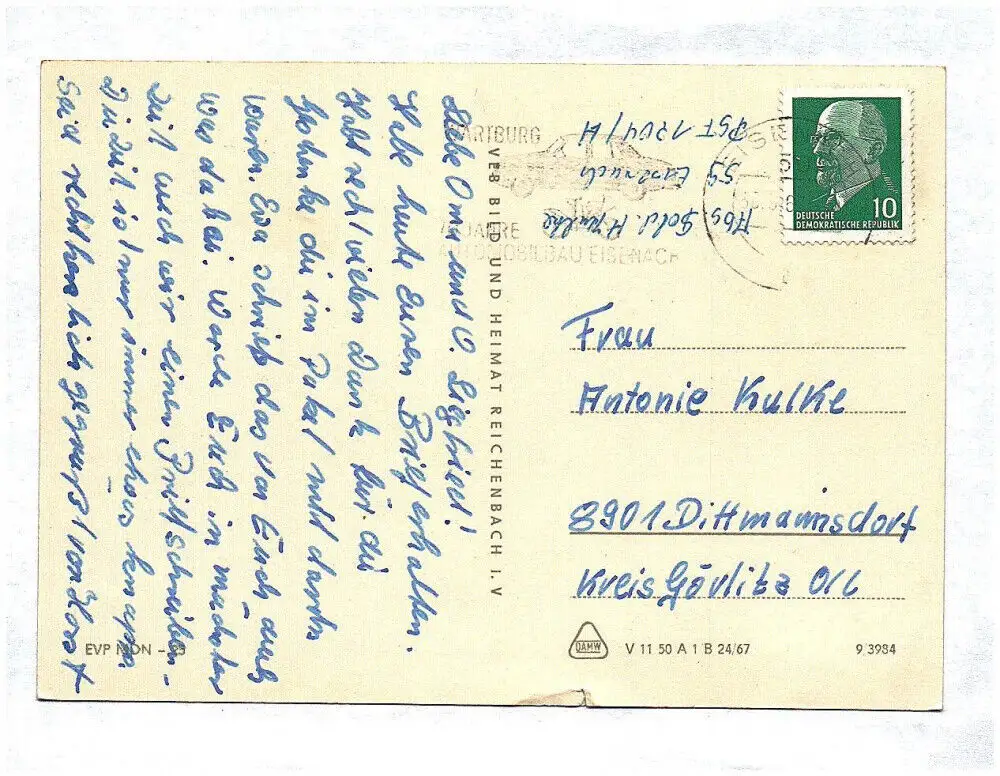 Liebe Omi und O. Sigfried!
Habe heute Euren Brief erhalten.
Habt recht vielen Dank für die
Geschenke die im Paket nicht
waren. Eva schrieb das von Euch auch
was dabei. Werde Euch in nächster
Zeit auch wir einen Brief schreiben-
Die Zeit ist nur immer etwas knapp.
Seid recht herzlich gegrüßt von Horst
EVP MDN -
VEB BILD UND HEIMAT REICHENBACH I. V
WARTBURG
JAHRE
AUTOMOBILBAU EISENACH
Abs. Sold. H. Kulke
59 Eisenach
PST 1704/H
10
DEUTSCHE
DEMOKRATISCHE REPUBLIK
Frau
Antonie Kulke
8901 Dittmannsdorf
Kreis Görlitz O/L
DAMW
V 11 50 A 1 B 24/67
9/3984